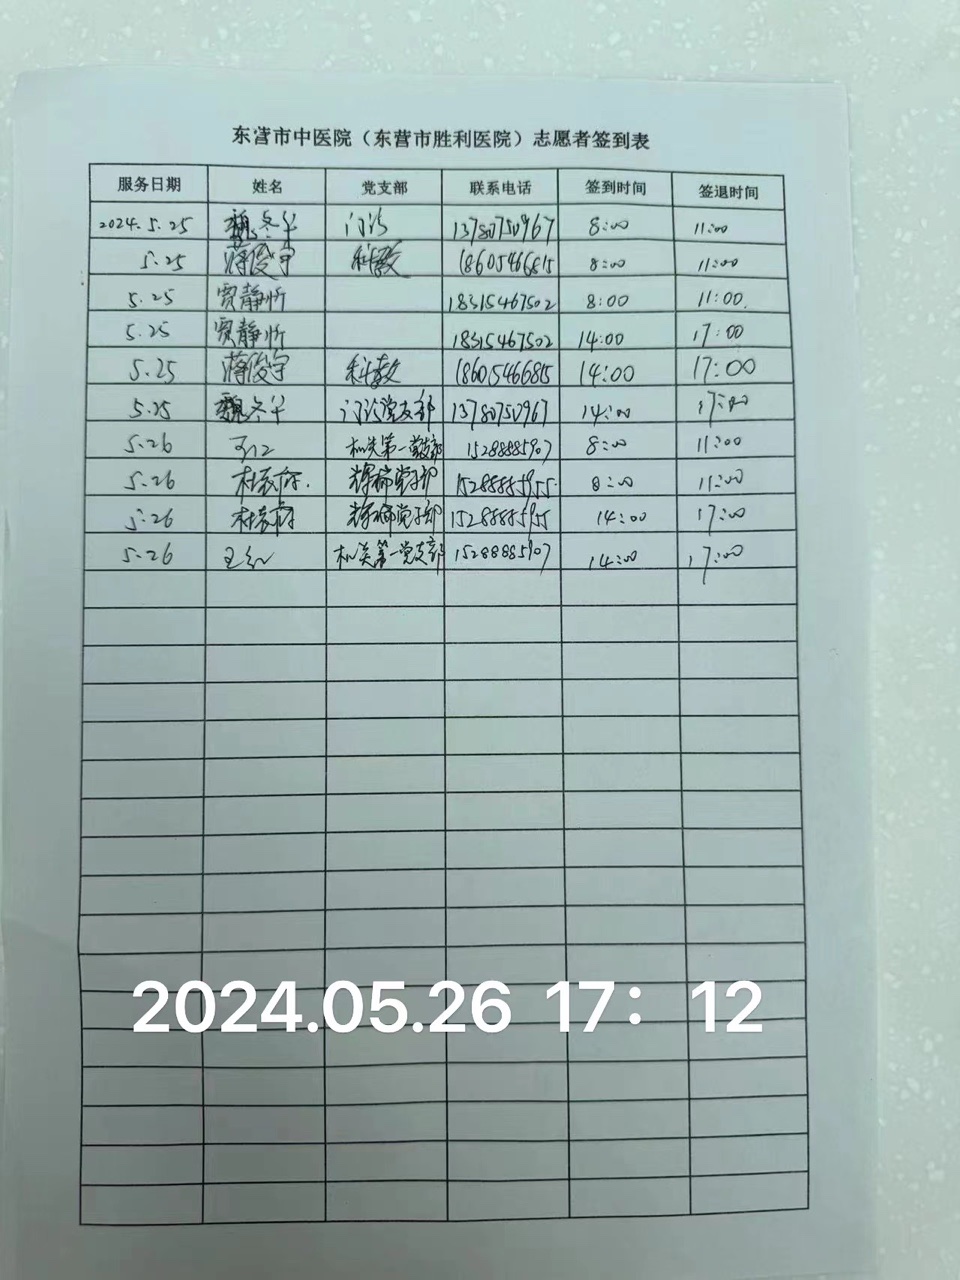 东营市中医院（东营市胜利医院）志愿者签到表
服务日期 姓名 党支部 联系电话 签到时间 签退时间
2024.5.25 魏冬华 门诊 13780750967 8:00 11:00
5.25 蒋俊宇 科教 18605466815 8:00 11:00
5.25 贾静忻 18315467502 8:00 11:00
5.25 贾静忻 18315467502 14:00 17:00
5.25 蒋俊宇 科教 18601546685 14:00 17:00
5.25 魏冬华 门诊党支部 13780750967 14:00 17:00
5.26 机关第一党支部 15288885907 8:00 11:00
5.26 党支部 15288885955 8:00 11:00
5.26 党支部 15288885955 14:00 17:00
5.26 王红 机关第一党支部 15288885907 14:00 17:00
2024.05.26 17：12